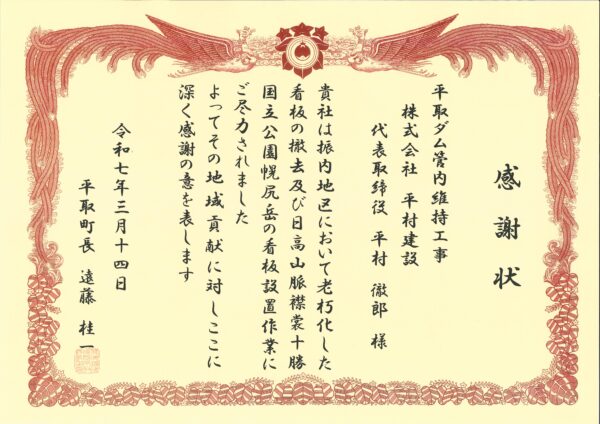 感謝状
平取ダム管内維持工事
株式会社 平村建設
代表取締役 平村 徹郎 様
貴社は振内地区において老朽化した
看板の撤去及び日高山脈襟裳十勝
国立公園幌尻岳の看板設置作業に
ご尽力されました
よってその地域貢献に対しここに
深く感謝の意を表します
令和七年三月十四日
平取町長 遠藤 桂一